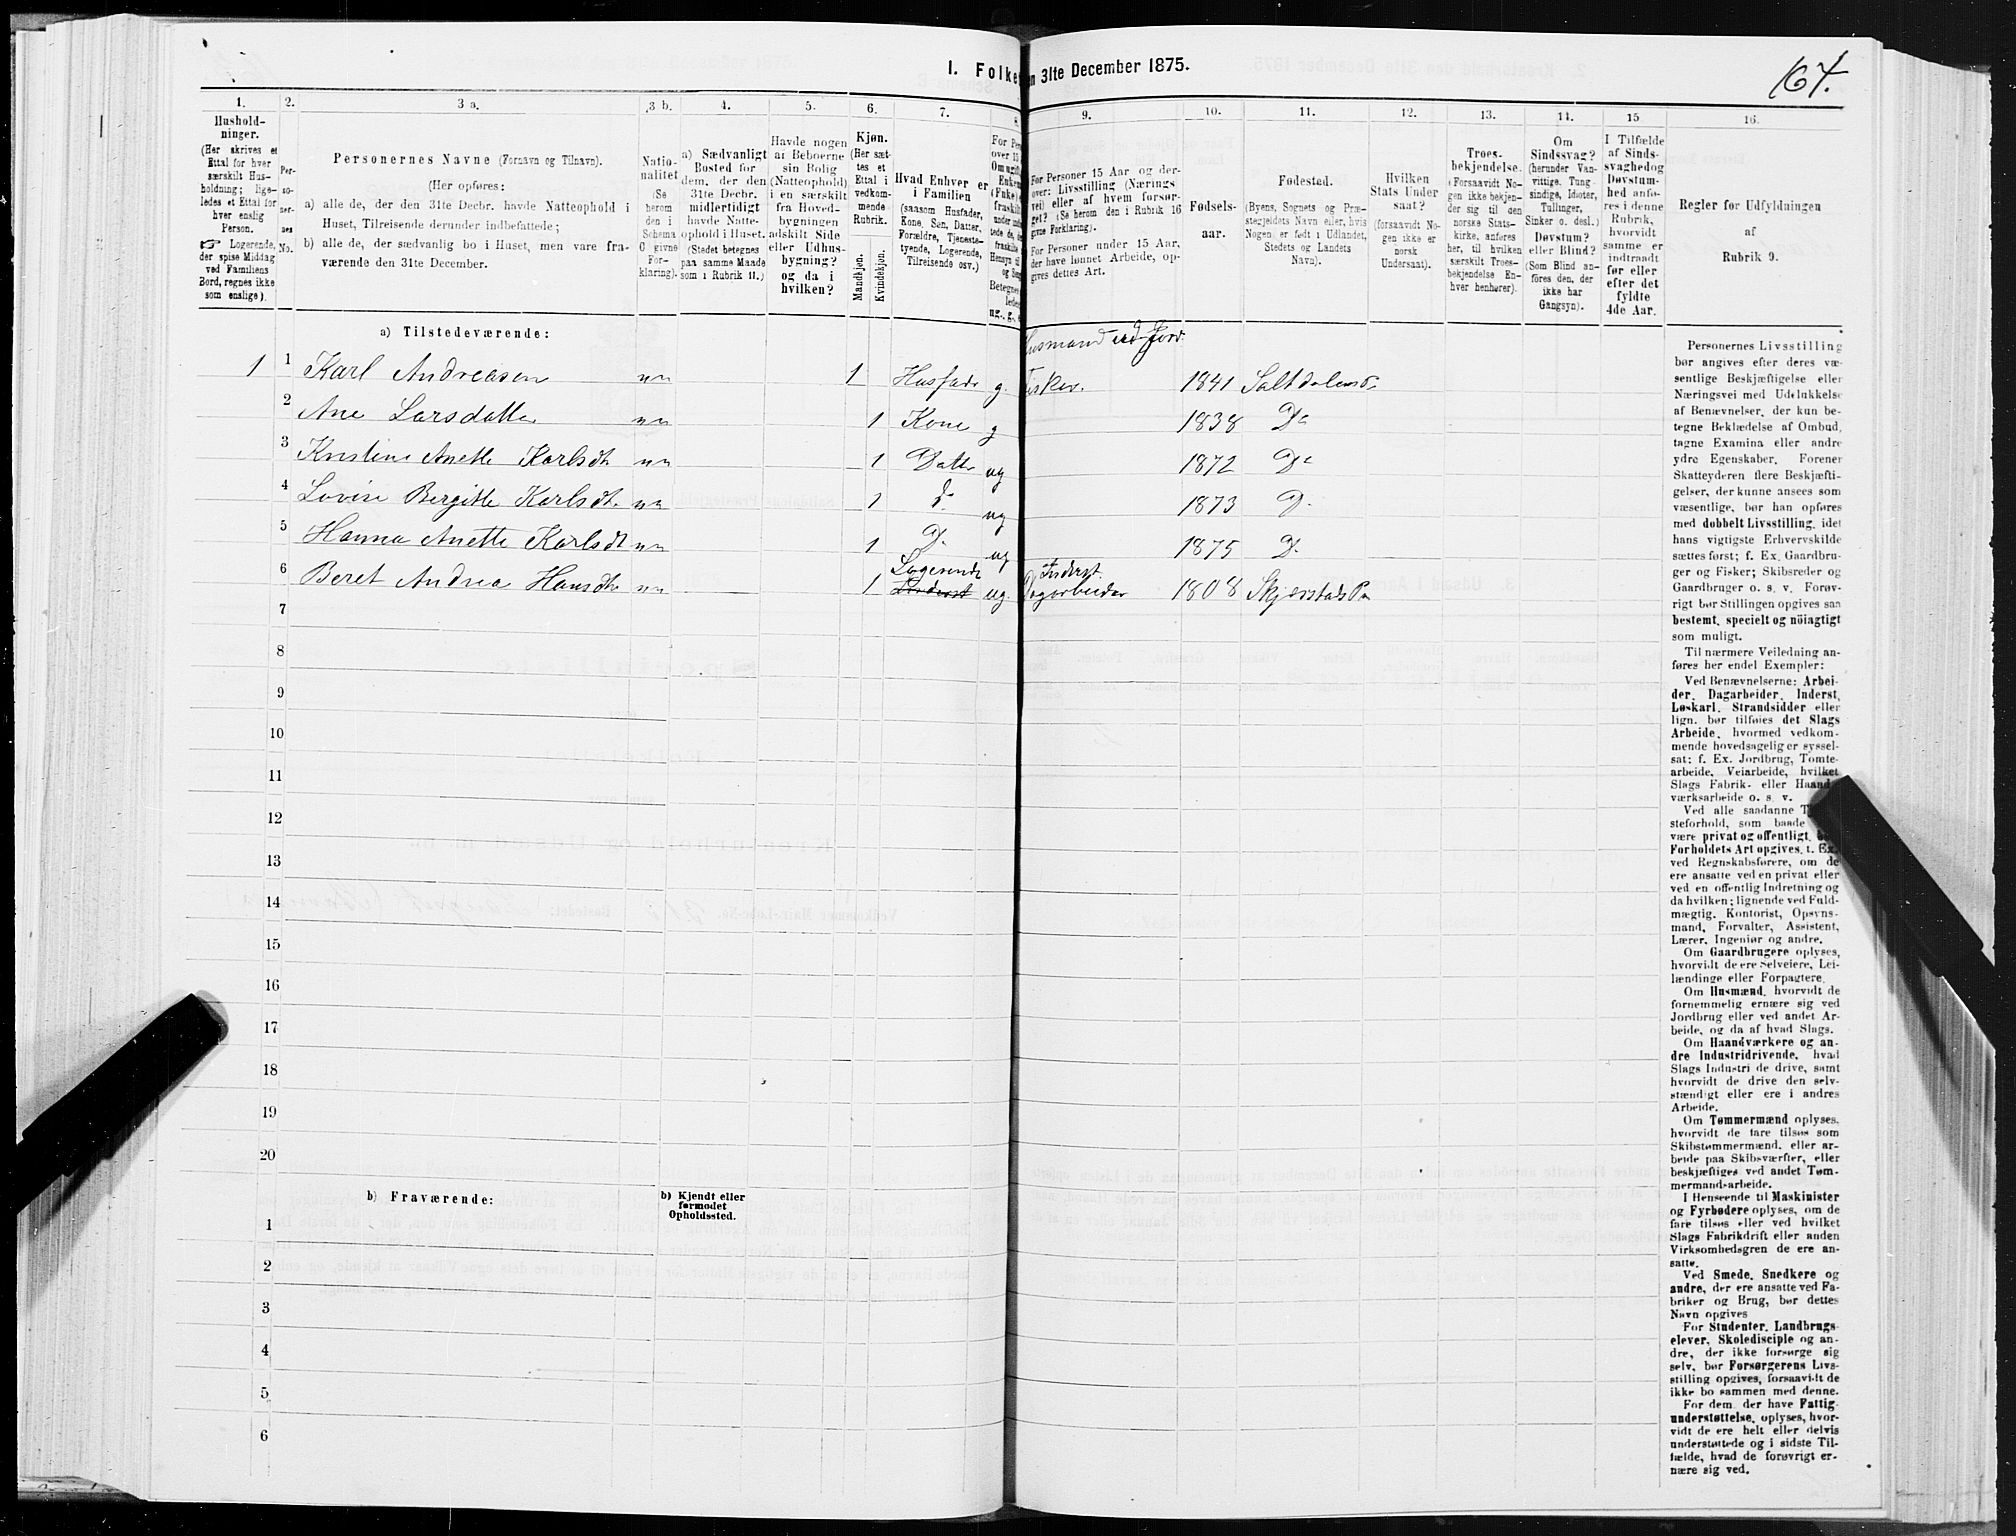 164.
I. Folke
en 31te December 1875.
1. 2. 3 a. 3 b. 4. 5. 6. 7. 8. 9. 10. 11. 12. 13. 14. 15 16.
Hushold-
ninger.
(Her skrives et
Ettal for hver
særskilt Hus-
holdning; lige-
ledes et Ettal for
hver enslig
Person.
☞ Logerende,
der spise Middag
ved Familiens
Bord, regnes ikke
som enslige).
Per-
so-
ner-
nes
No.
Personernes Navne (Fornavn og Tilnavn).
(Her opføres:
a) alle de, der den 31te Decbr. havde Natteophold i
Huset, Tilreisende derunder indbefattede;
b) alle de, der sædvanlig bo i Huset, men vare fra-
værende den 31te December.
Natio-
nalitet
(Se
herom
den i
Schema
O givne
For-
klaring).
a) Sædvanligt
Bosted for
dem, der den
31te Decbr.
midlertidigt
havde Natte-
ophold i Huset.
(Stedet betegnes
paa samme Maade
som i Rubrik 11.)
Havde nogen
af Beboerne
sin Bolig
(Natteophold)
i en særskilt
fra Hoved-
bygningen
adskilt Side
eller Udhus-
bygning?
og da i
hvilken?
Kjøn.
(Her sæt-
tes et
Ettal i
vedkom-
mende
Rubrik.
Mandkjøn.
Kvindekjøn.
Hvad Enhver er
i Familien
(saasom Husfader,
Kone, Søn, Datter,
Forældre, Tjeneste-
tyende, Logerende,
Tilreisende osv.)
For Pers
over 15
Om ugift
Enken
(Fnke)
fraskilt
under
tede de, d
fraskilte
Hensyn til
og Sen
Betegnes
lede
ug., g., e
For Personer 15 Aar og der-
over: Livsstilling (Nærings
vei) eller af hvem forsør-
get? (Se herom den i Rubrik 16
givne Forklaring).
For Personer under 15 Aar,
der have lønnet Arbeide, op-
gives dettes Art.
Fødsels-
aar.
Fødested.
(Byens, Sognets og Præ-
stegjeldets Navn eller, hvis
Nogen er født i Udlandet,
Stedets og Landets
Navn).
Hvilken
Stats Under
saat?
(forsaavidt No-
gen ikke er
norsk
Undersaat).
Troes-
bekjendelse.
(Forsaavidt No-
gen ikke bekjen-
der sig til den
norske Stats-
kirke, anføres
her, til hvilken
særskilt Troes-
bekjendelse En-
hver henhører).
Om
Sindssvag?
(herunder Van-
vittige, Tung-
sindige, Idioter,
Tullinger,
Sinker o. desl.)
Døvstum?
eller Blind?
(Som Blind an-
føres den, der
ikke har
Gangsyn).
I Tilfælde
af Sinds-
svaghed og
Døvstum-
hed anfø-
res i denne
Rubrik,
hvorvidt
samme er
indtraadt
før eller
efter det
fyldte
4de Aar.
Regler for Udfyldningen
af
Rubrik 9.
a) Tilstedeværende:
Husmand ud Jord
1 1 Karl Andreasen nn 1 Husfader g. Fisker. 1841 Saltdalens
2 Ane Larsdatter nn 1 Kone g 1838 Do
3 Kristine Anette Karlsdt nn 1 Datter ug 1872 Do
4 Lovise Bergitte Karlsdt nn 1 do ug 1873 D.
5 Hanna Anette Karlsdt nn 1 D. ug 1875 D.
Logerende Inderst.
6 Beret Andrea Hansdt nn 1 Inderst ug. Dagarbeider 1808 Skjerstads P
7
8
9
10
11
12
13
14
15
16
17
18
19
20
b) Fraværende:
b) Kjendt eller
formodet
Opholdssted.
1
2
3
4
5
6
Personernes Livsstilling
bør angives efter deres væ-
sentlige Beskjæftigelse eller
Næringsvei med Udelukkelse
af Benævnelser, der kun be-
tegne Beklædelse af Ombud,
tagne Examina eller andre
ydre Egenskaber. Forener
Skatteyderen flere Beskjæfti-
gelser, der kunne ansees som
væsentlige, bør han opføres
med dobbelt Livsstilling, idet
hans vigtigste Erhvervskilde
sættes først; f. Ex. Gaardbru-
ger og Fisker; Skibsreder og
Gaardbruger o. s. v. Forøv-
rigt bør Stillingen opgives saa
bestemt, specielt og nöiagtigt
som muligt.
Til nærmere Veiledning an-
føres her endel Exempler:
Ved Benævnelserne: Arbei-
der, Dagarbeider, Inderst,
Løskarl, Strandsidder eller
lign. bør tilføies det Slags
Arbeide, hvormed vedkom-
mende hovedsagelig er syssel-
sat; f. Ex. Jordbrug, Tomte-
arbeide, Veiarbeide, hvilket
Slags Fabrik- eller Haand-
værksarbeide o. s. v.
Ved alle saadanne Tjene-
steforhold, som baade
være privat og offentligt,
Forholdets Art opgives, t. Ex.
ved Regnskabsførere, om de
ere ansatte ved en privat eller
ved en offentlig Indretning og
da hvilken; lignende ved Fuld-
mægtig, Kontorist, Opsyns-
mand, Forvalter, Assistent,
Lærer, Ingeniør og andre.
Om Gaardbrugere oplyses,
hvorvidt de ere Selveiere, Lei-
lændinge eller Forpagtere.
Om Husmænd, hvorvidt de
fornemmelig ernære sig ved
Jordbrug eller ved andet Ar-
beide, og da af hvad Slags.
Om Haandværkere og an-
dre Industridrivende, hvad
Slags Industri de drive, samt
hvorvidt de drive den selv-
stændigt eller ere i andres
Arbeide.
Om Tømmermænd oplyses,
hvorvidt de fare tilsøs som
Skibstømmermænd, eller ar-
beide paa Skibsværfter, eller
beskjæftiges ved andet Tøm-
mermandsarbeide.
I Henseende til Maskinister
og Fyrbødere oplyses, om de
fare tilsøs eller ved hvilket
Slags Fabrikdrift eller anden
Virksomhedsgren de ere an-
satte.
Ved Smede, Snedkere og
andre, der ere ansatte ved Fa-
briker og Brug, bør dettes
Navn opgives
For Studenter, Landbrugs-
elever, Skoledisciple og an-
dre, der ikke forsørge sig
selv, bør Forsørgerens Livs-
stilling opgives, forsaavidt de
ikke bo sammen med denne.
For dem, der have Fattig-
understøttelse, oplyses, hvor-
vidt de ere helt eller delvis
understøttede og i sidste Til-
fælde, hvad de forøvrigt er-
nære sig ved.